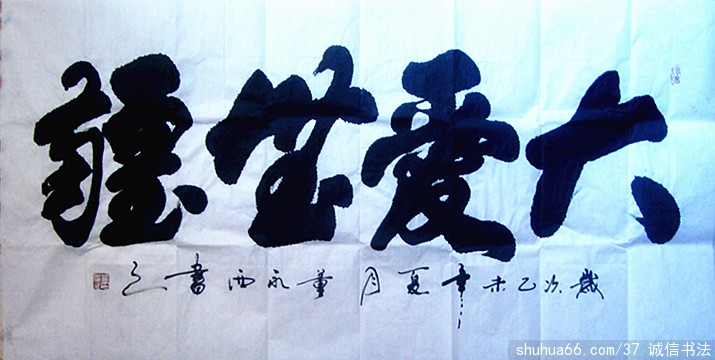 大愛無疆
歲次乙未年夏月董永西書之
shuhua66.com/37 诚信书法